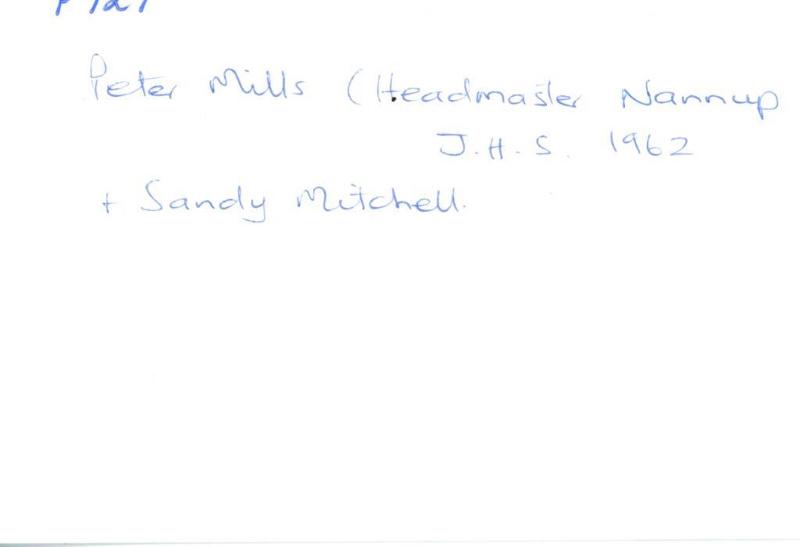 Peter Mills (Headmaster Nannup
J.H.S. 1962
+ Sandy Mitchell.